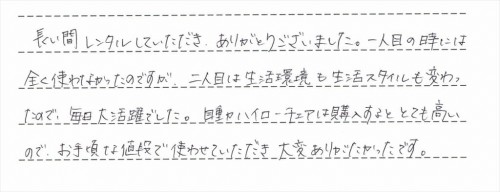 長い間レンタルしていただき、ありがとうございました。一人目の時には
全く使わなかったのですが、二人目は生活環境も生活スタイルも変わっ
たので、毎日大活躍でした。自動ハイローチェアは購入するととても高い
ので、お手頃な値段で使わせていただき大変ありがたかったです。